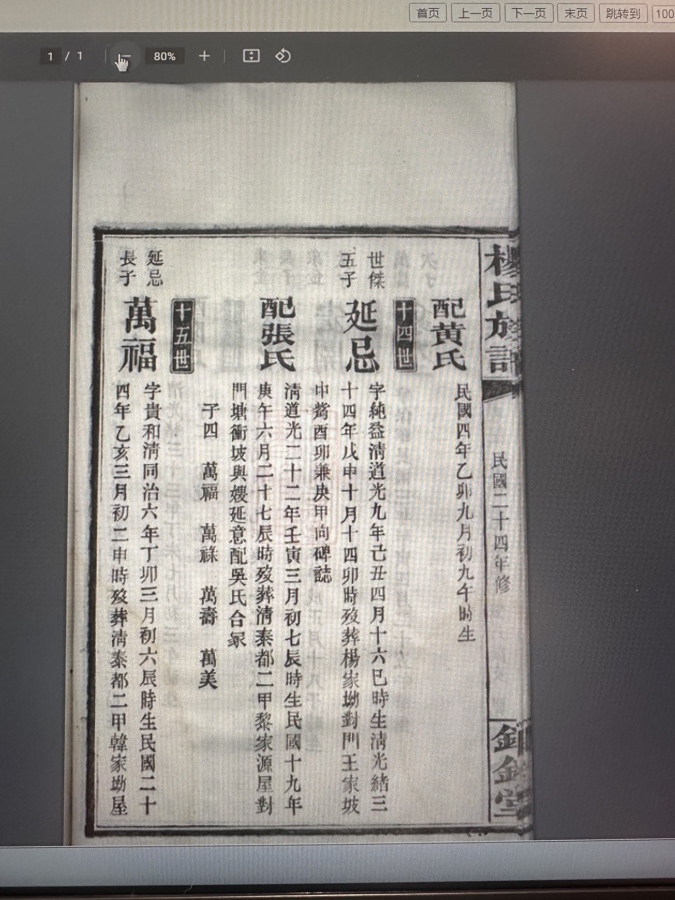 首页 上一页 下一页 末页 跳转到 100
1 / 1 80%
楊氏族譜
民國二十四年修
配黃氏
民國四年乙卯九月初九午時生
十四世
世傑
五子
延忌
字純益清道光九年己丑四月十六巳時生清光緒三
十四年戊申十月十四卯時歿葬楊家坳對門王家坡
中觜酉卯兼庚甲向碑誌
配張氏
清道光二十二年壬寅三月初七辰時生民國十九年
庚午六月二十七辰時歿葬清泰都二甲黎家源屋對
門塘衝坡與嫂延意配吳氏合冢
子四 萬福 萬祿 萬壽 萬美
十五世
延忌
長子
萬福
字貴和清同治六年丁卯三月初六辰時生民國二十
四年乙亥三月初二申時歿葬清泰都二甲韓家坳屋